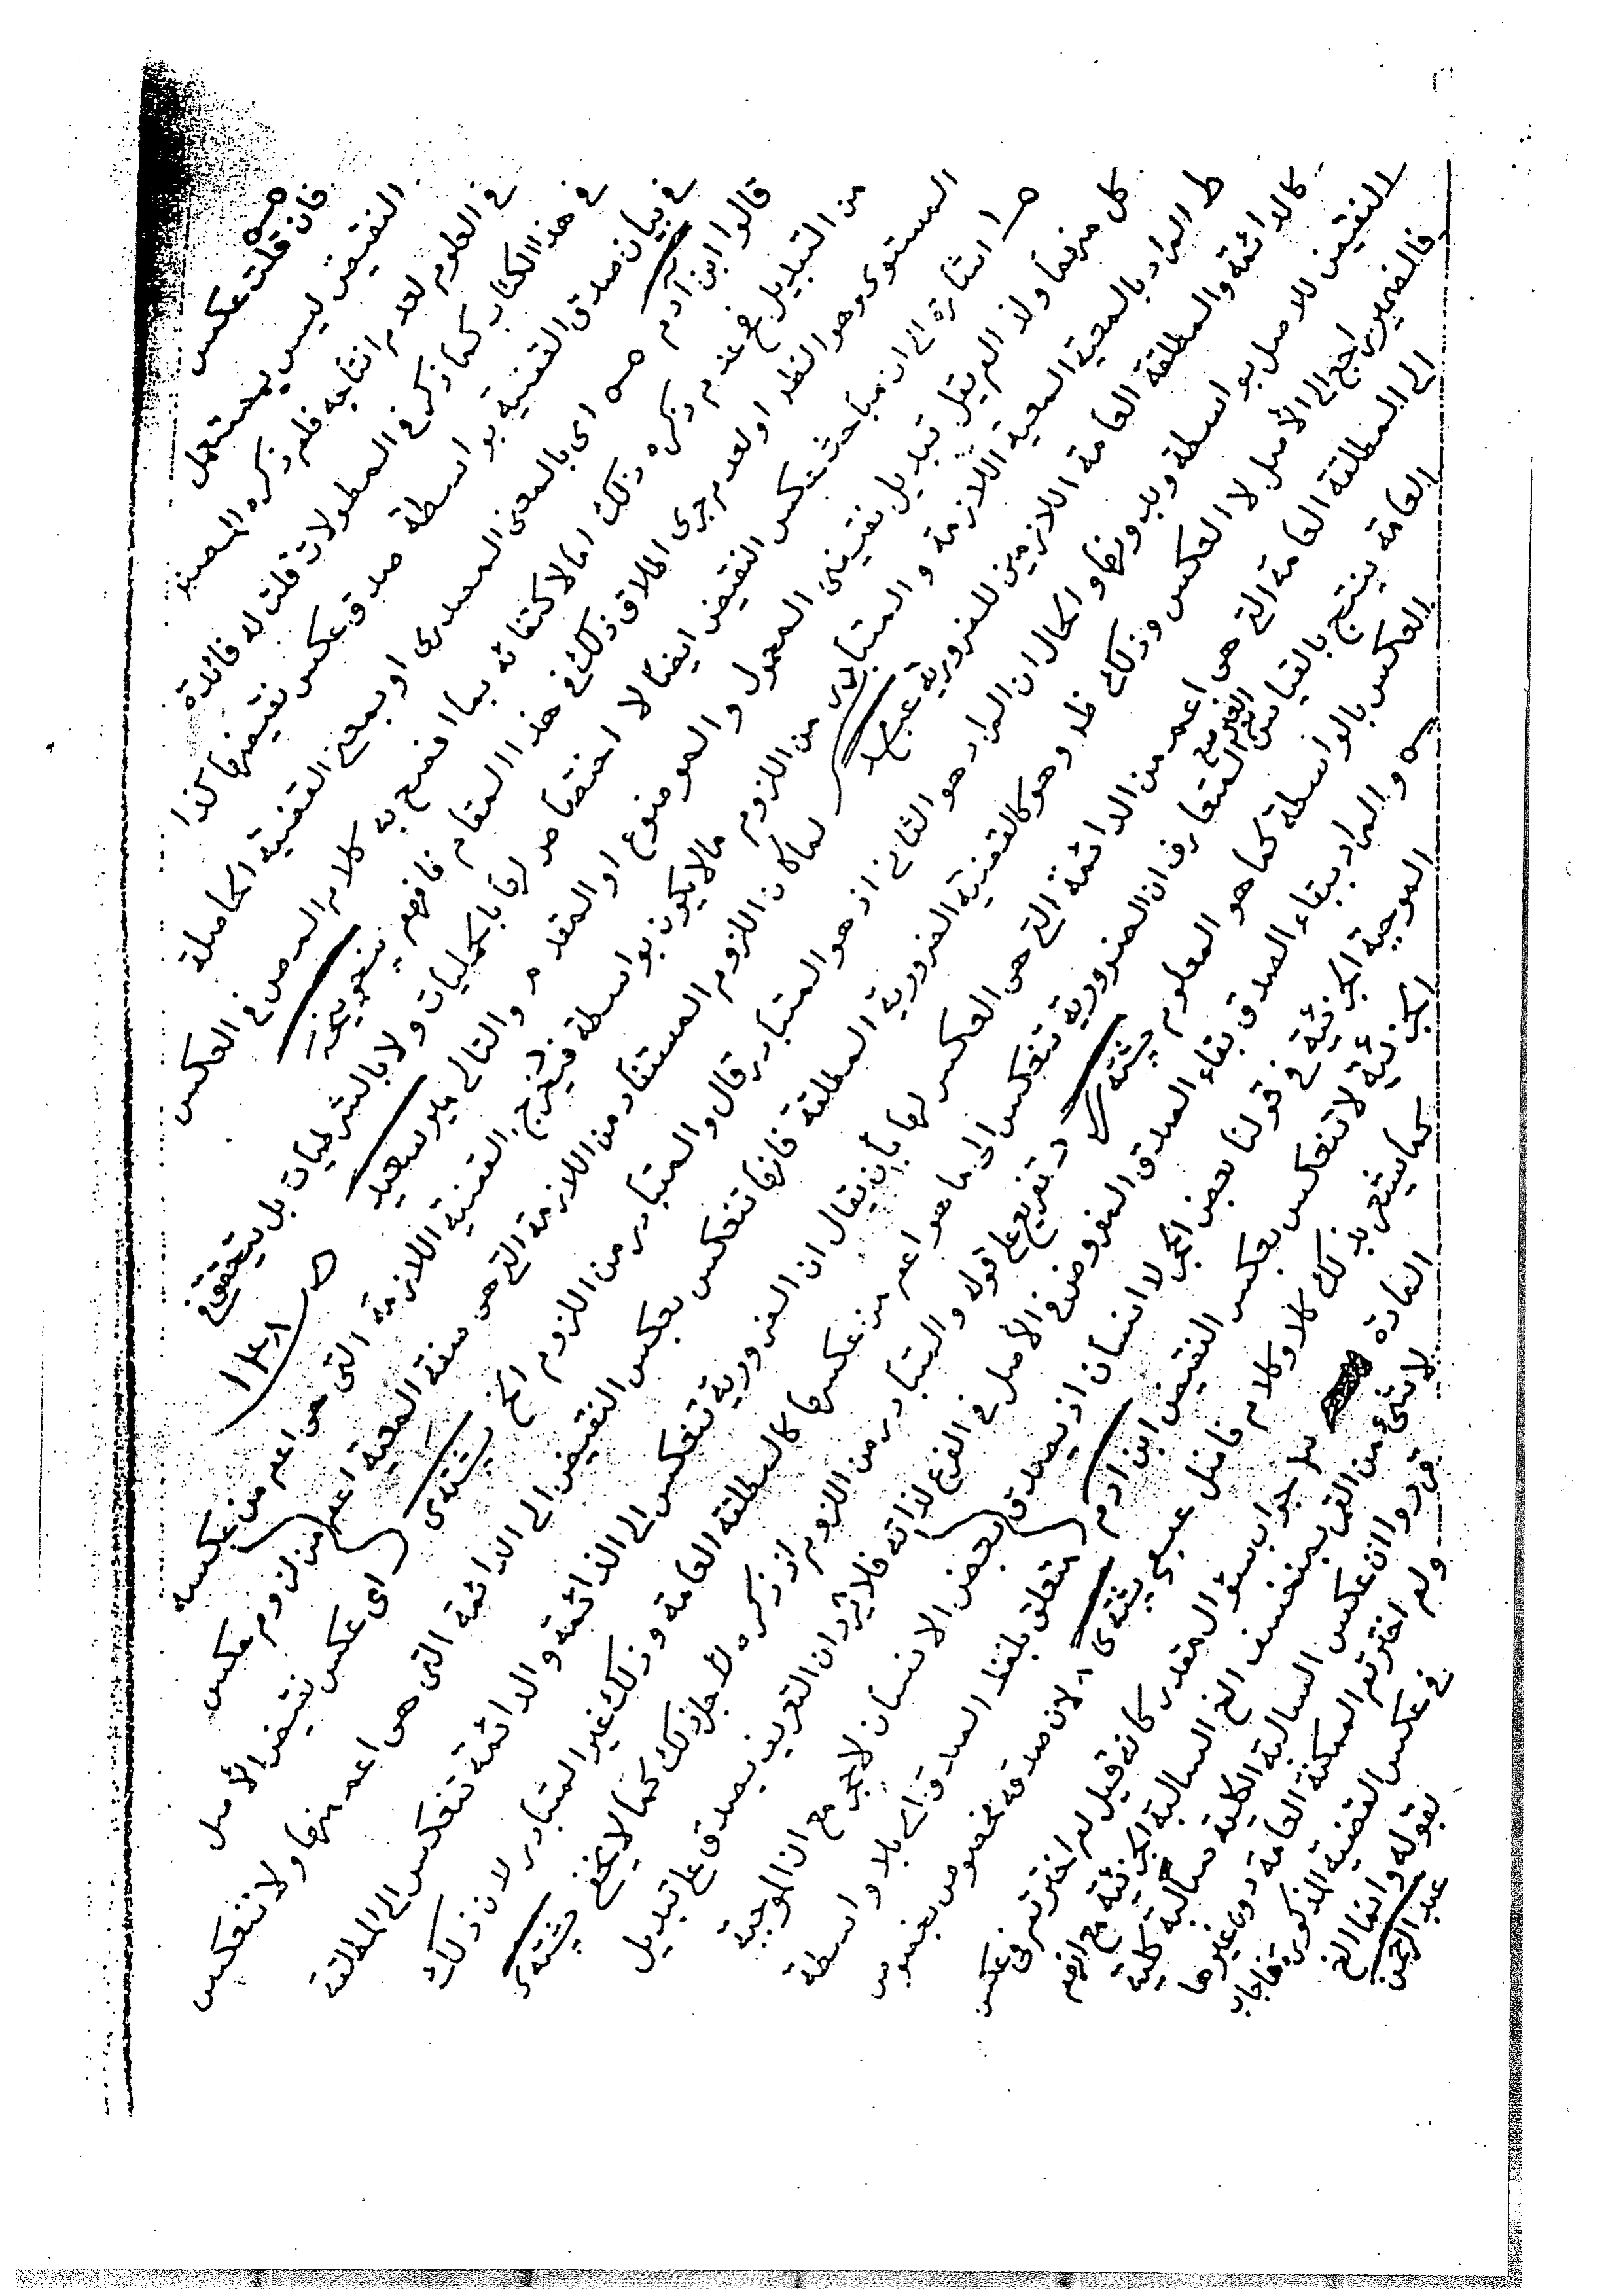 فان قلت عكس
النقيض ليس بمستعمل
في العلوم لعدم انتاجه فلم ذكره المصنف
في هذا الكتاب كما ذكر في المطولات قلت له فائدة
في بيان صدق القضية بواسطة صدق عكس نقيضها كذا
قالوا ابن آدم اى بالمعنى المصدرى او بمعنى القضية الحاصلة
من التبديل فح عدم ذكره ذلك اما لاكتفائه بما افصح به كلام المص في العكس
المستوى وهو الظاهر او لعدم جرى اطلاق ذلك في هذا المقام فافهم
اشارة الى ان مباحث عكس النقيض ايضا لا اختصاص لها بالحمليات ولا بالشرطيات بل يتحقق في
كل منهما ولذا لم يقل تبديل نقيضى المحمول والموضوع او المقدم والتالي ابو سعيد
ط المراد بالمعية المعية اللازمة والمتبادر من اللزوم ما لا يكون بواسطة فيخرج القضية اللازمة التى هى اعم من عكسه
كالدائمة والمطلقة العامة اللازمين للضرورية لما كان اللزوم المستفاد من اللازمة التي هي صفة المعية اعم من لزوم عكس
النقيض للاصل بواسطة وبدونها والحال ان المراد هو الثاني اذ هو المتبادر قال والمتبادر من اللزوم الخ پشتدى اى عكس نقيض الأصل
فالضمير راجع الى الأصل لا العكس وذلك ظ وهو كالقضية الضرورية المطلقة فانها تنعكس بعكس النقيض الى الدائمة التى هى اعم منها ولا تنعكس
الى المطلقة العامة التي هى اعم من الدائمة التي هى العكس لها بأن يقال ان الضرورية تنعكس الى الدائمة والدائمة تنعكس الى المطلقة
العامة ينتج بالقياس الغير المتعارف ان الضرورية تنعكس الى ما هو اعم من عكسها كالمطلقة العامة وذلك غير المتبادر لان ذلك
العكس بالواسطة كما هو المعلوم تفريع على قوله والمتبادر من اللزوم اذ ذكره لاجل ذلك كما لا يخفى پشتدى
والمراد ببقاء الصدق بقاء الصدق المفروض في الأصل في الفرع لذاته فلا يرد ان التعريف يصدق على تبديل
الموجبة الجزئية في قولنا بعض الحجر لا انسان اذ يصدق بعض الانسان لا حجر مع ان الموجبة
الجزئية لا تنعكس بعكس النقيض ابن ادم متعلق بلفظ الصدق اى بلا واسطة
كما يشعر بذلك كلا وكلام فاضل پشتدى لان صدقه بخصوص
المادة جواب سؤال مقدر كانه قيل لم اخترتم في عكس
لا شئ من القمر بمنخسف الخ السالبة الجزئية مع انهم
قرروا ان عكس السالبة الكلية سالبة كلية
ولم اخترتم الممكنة العامة دون غيرها
في عكس القضية المذكورة فاجاب
بقوله وانما الخ
عبد الرحمن